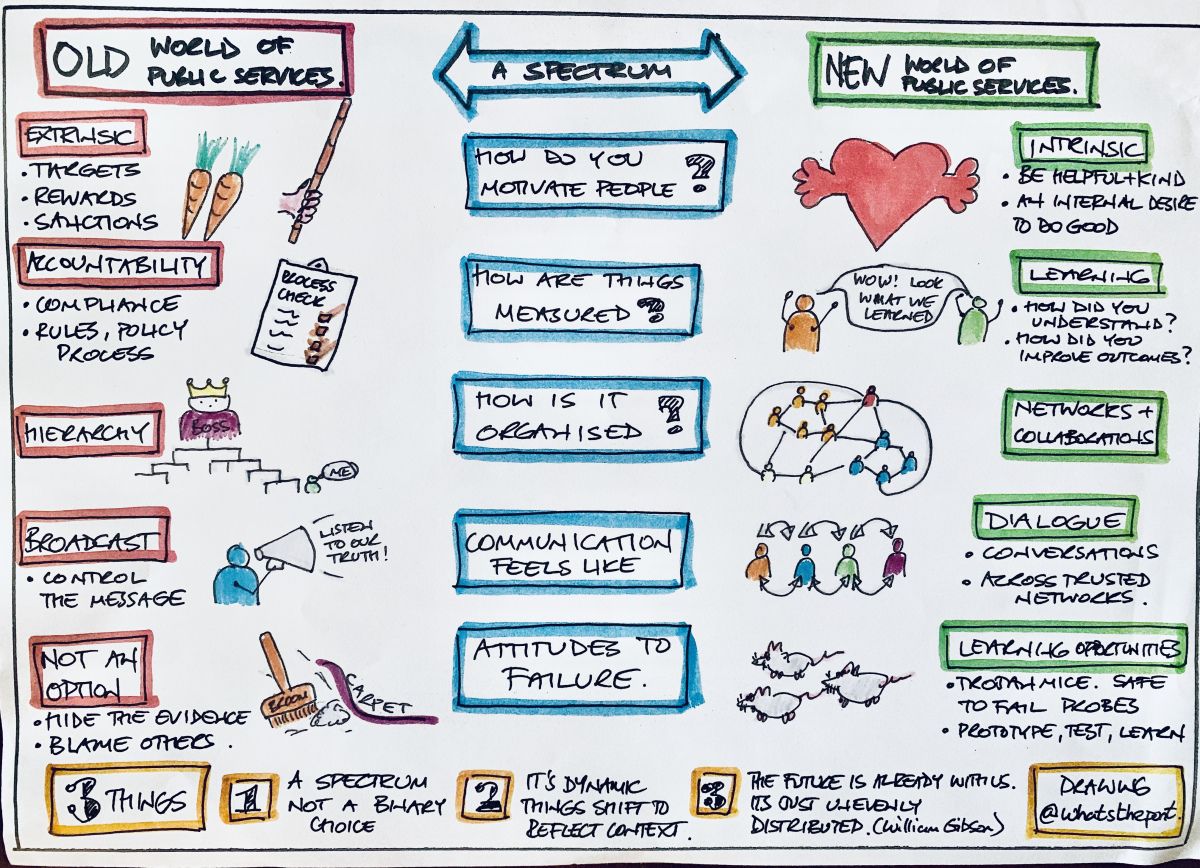 OLD WORLD OF
PUBLIC SERVICES.
A SPECTRUM
NEW WORLD OF
PUBLIC SERVICES.
EXTRINSIC
• TARGETS
• REWARDS
• SANCTIONS
HOW DO YOU
MOTIVATE PEOPLE ?
INTRINSIC
• BE HELPFUL + KIND
• AN INTERNAL DESIRE
TO DO GOOD
ACCOUNTABILITY
• COMPLIANCE
• RULES, POLICY
PROCESS
PROCESS
CHECK
HOW ARE THINGS
MEASURED ?
WOW! LOOK
WHAT WE
LEARNED
LEARNING
• HOW DID YOU
UNDERSTAND?
• HOW DID YOU
IMPROVE OUTCOMES?
HIERARCHY
BOSS
ME
HOW IS IT
ORGANISED ?
NETWORKS +
COLLABORATIONS
BROADCAST
• CONTROL
THE MESSAGE
LISTEN
TO OUR
TRUTH!
COMMUNICATION
FEELS LIKE
DIALOGUE
• CONVERSATIONS
• ACROSS TRUSTED
NETWORKS.
NOT AN
OPTION
• HIDE THE EVIDENCE
• BLAME OTHERS.
BROOM
CARPET
ATTITUDES TO
FAILURE.
LEARNING OPPORTUNITIES
• TROJAN MICE. SAFE
TO FAIL PROBES
• PROTOTYPE, TEST, LEARN
3 THINGS
1
A SPECTRUM
NOT A BINARY
CHOICE
2
IT'S DYNAMIC
THINGS SHIFT TO
REFLECT CONTEXT.
3
THE FUTURE IS ALREADY WITH US.
ITS JUST UNEVENLY
DISTRIBUTED. (William Gibson)
DRAWING
@whatsthepont.